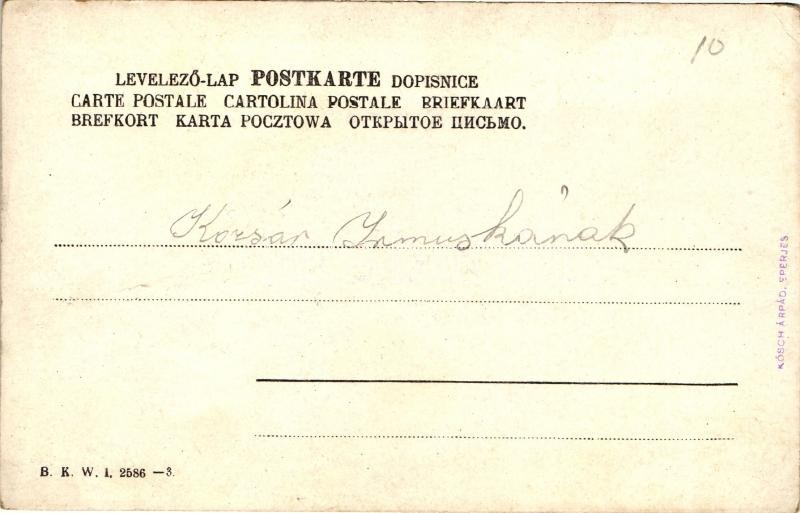 10
LEVELEZŐ-LAP POSTKARTE DOPISNICE
CARTE POSTALE CARTOLINA POSTALE BRIEFKAART
BREFKORT KARTA POCZTOWA ОТКРЫТОЕ ПИСЬМО.
Korsár Irmuskának
KÓSCH ÁRPÁD, EPERJES
B. K. W. I. 2586 —3.